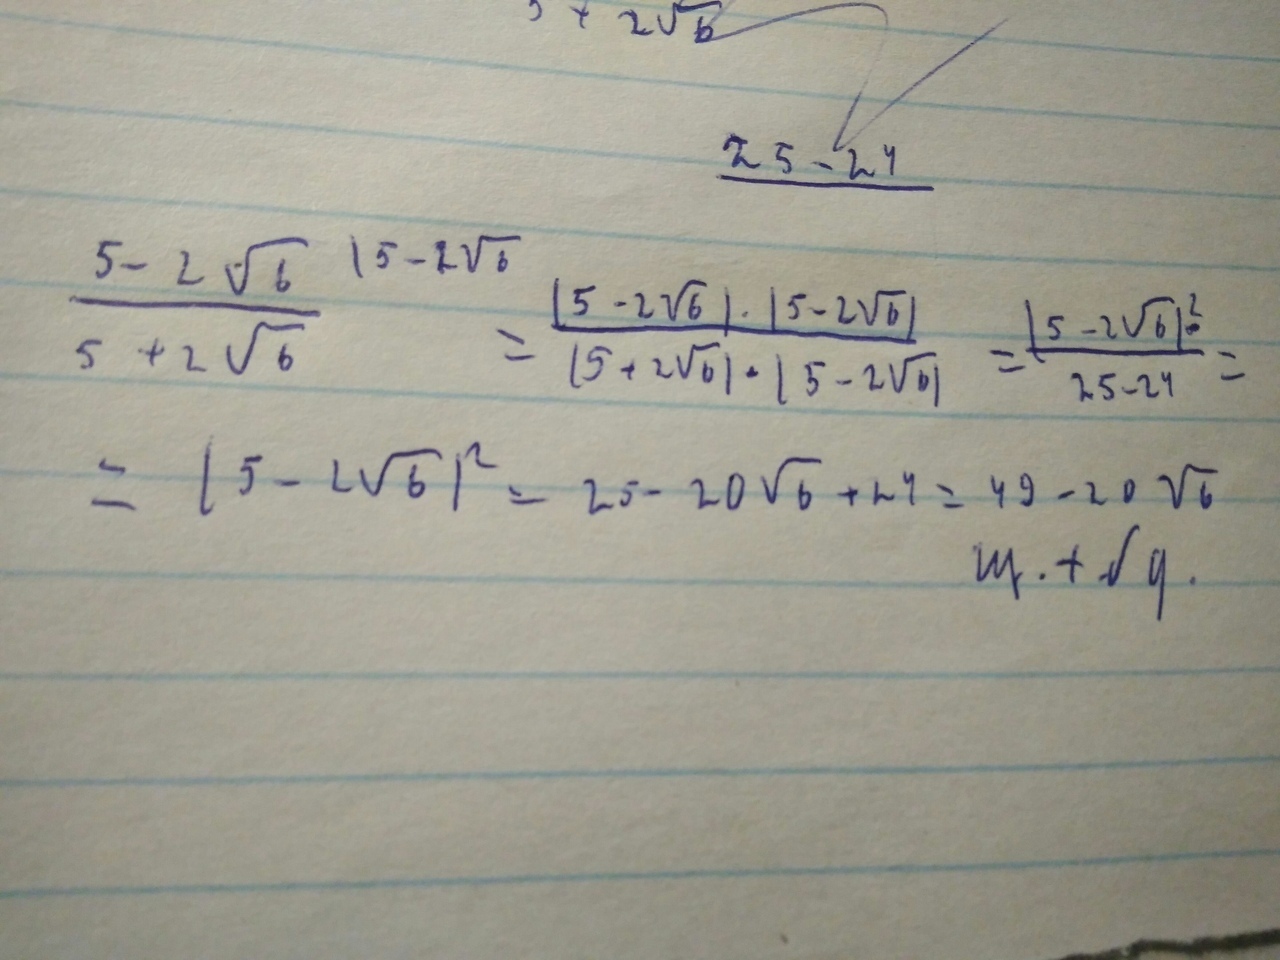 5 + 2√6
25-24
5-2√6 |5-2√6
5+2√6
= |5-2√6|·|5-2√6| / |5+2√6|·|5-2√6| = |5-2√6|² / 25-24 =
= |5-2√6|² = 25-20√6+24 = 49-20√6
m.+√q.